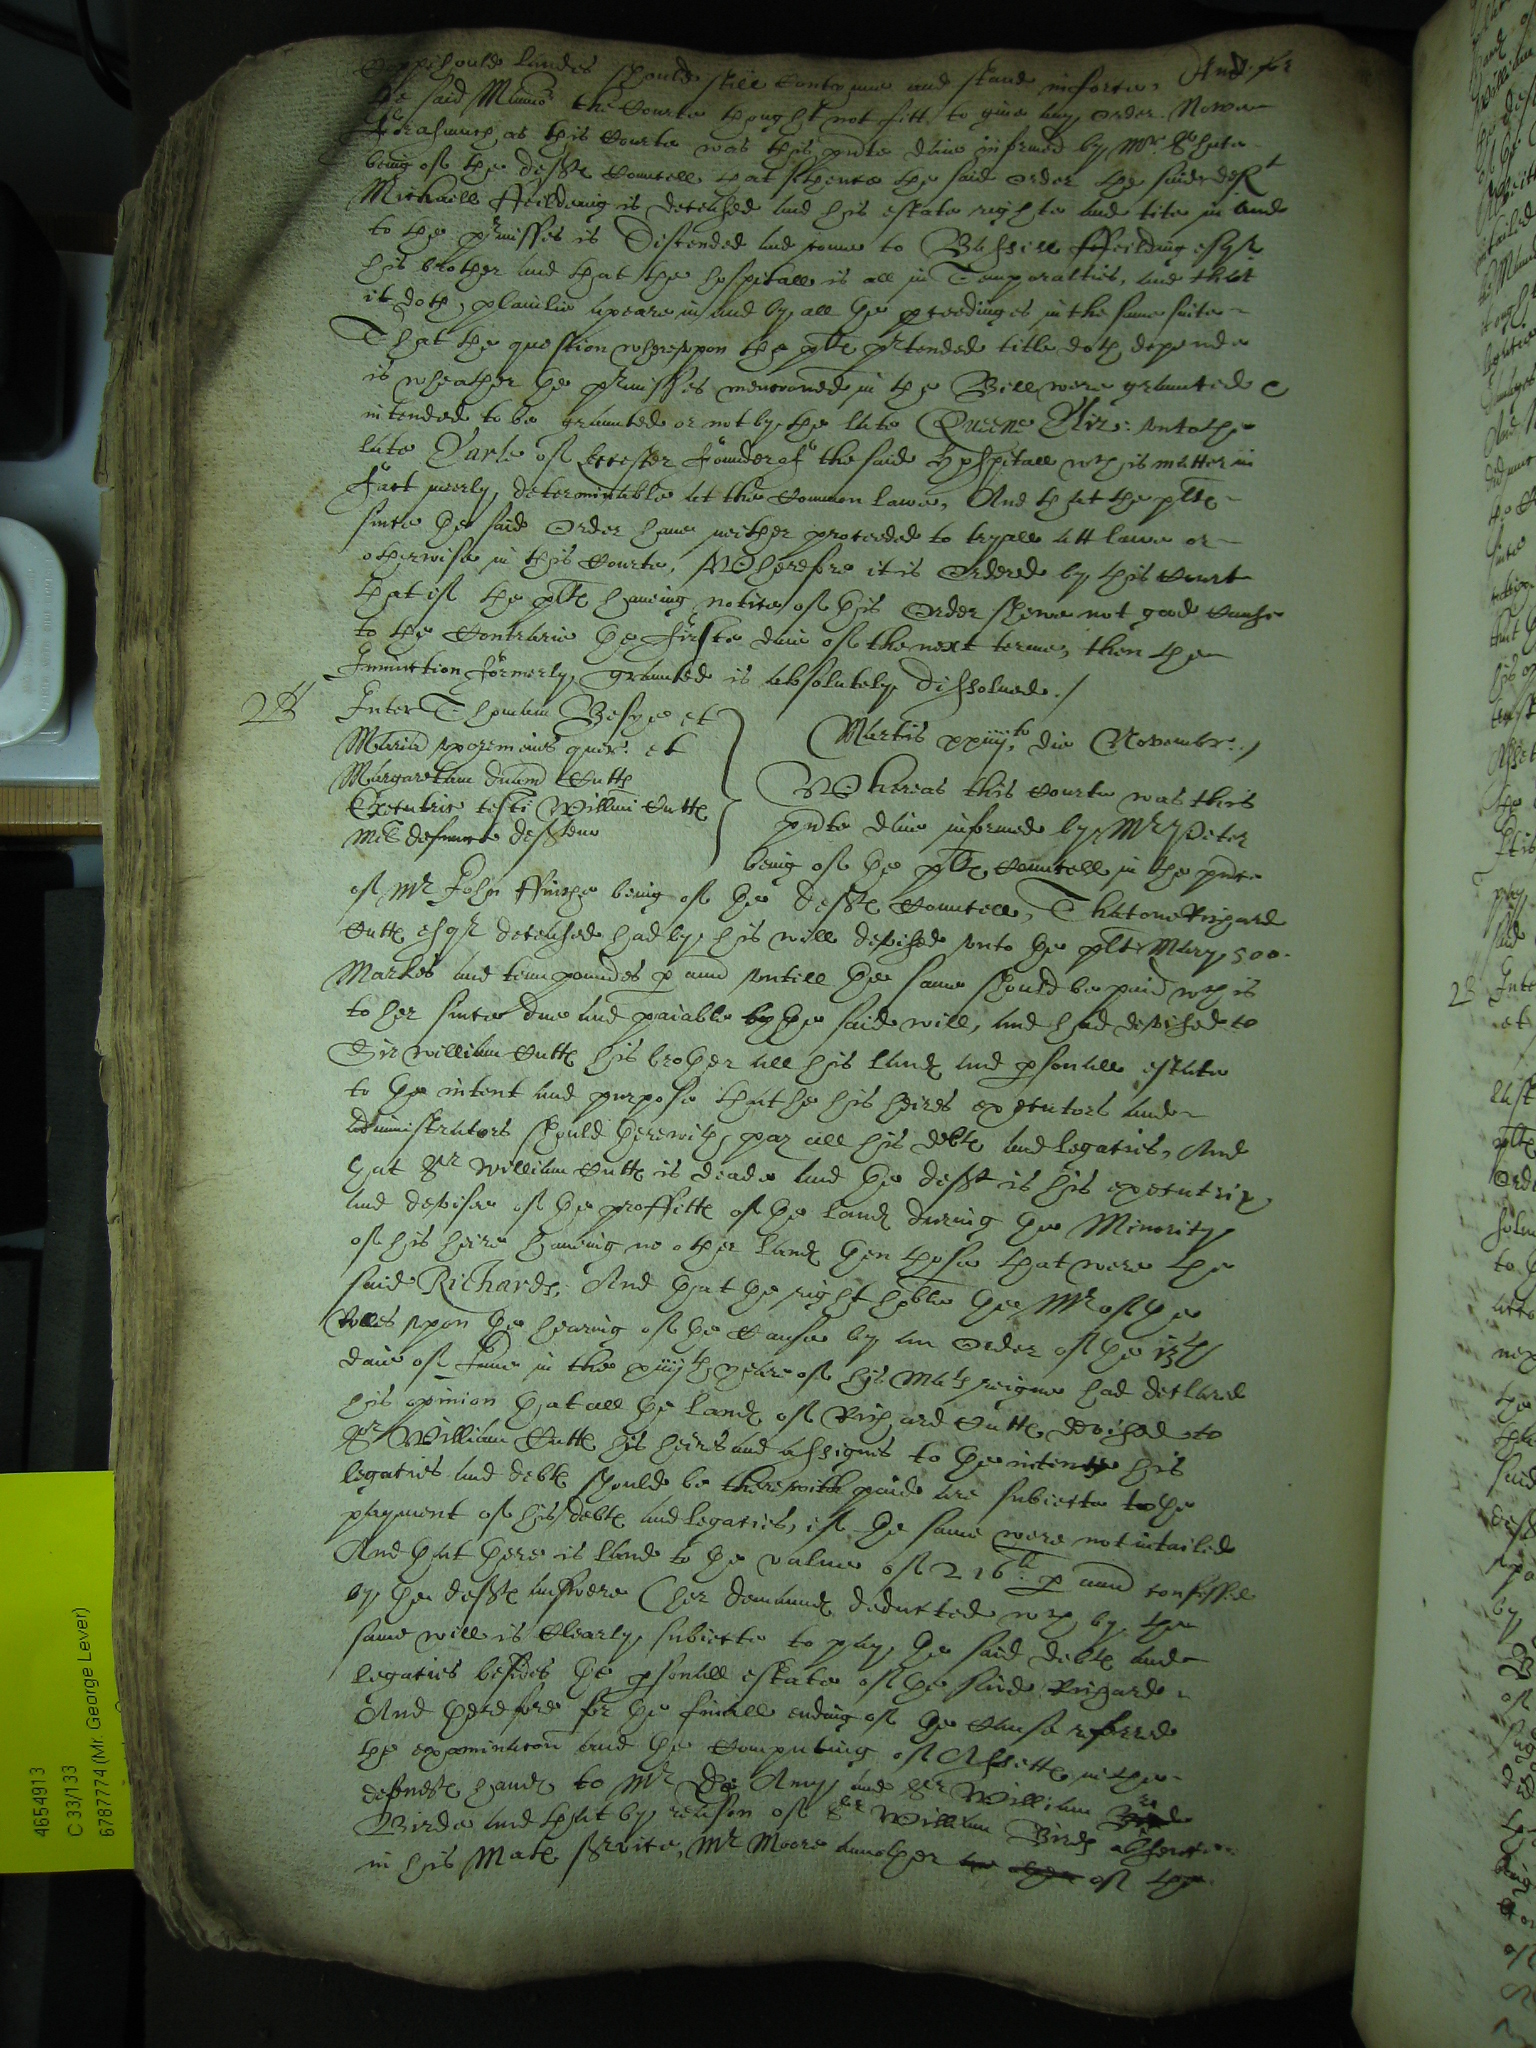 should still contynue and stand in force, And for
the said Mannor the Courte thought not fitt to give any order. Nowe
forasmuch as this Courte was this pnte daie informed by Mr.
being of the defts Councell that sithence the said order the said deft
Michaell ffeilding is deceased and his estate righte and title in and
to the pmisses is discended and come to Bassill ffeilding esqr
his brother and that the hospitall is all in Temporalties, and that
it doth plainlie apeare in and by all the pceedinges in the same suite
That the question whereupon the plts prtended title doth depende
is wheather the prmisses mencioned in the Bill were graunted &
intended to be graunted or not by the late Queene Eliz: unto the
late Earle of Leicester Founder of the saide hospitall wch is matter in
fact meerly determinable at the Common lawe, And that the plts
since the said Order have neither proceeded to tryall att lawe or
otherwise in this Courte, Wherefore it is Ordered by this Court
that if the plts haveing notice of this Order shewe not good cause
to the contrarie the firste daie of the next terme, then the
Iniunction formerly graunted is absolutely dissolved./
Inter Thomam et
Mariam uxorem eius quer. et
Margaretam dnam Cutts
Executric testi Willmi Cutts
milt defuncte deften
Martis xxiiijto die Novembr./
Whereas this Courte was this
pnte daie informed by Mr Peter
being of the plts Councell in the pnce
of Mr John ffinche being of the defts Councell, That one Richard
Cutts esqr deceased had by his will devised unto the plt Mary 500
Markes and tenn poundes p ann untill the same should be paid wch is
to her since due and paiable by the said will, and had devised to
Sir William Cutts his brother all his lands and psonall estate
to the intent and purpose that he his heires executors and
administrators should therewith pay all his debts and legacies, And
that Sr William Cutts is deade and the deft is his executrix
and devisee of the proffitts of the lands during the Minority
of his heire haveing no other lands then those that were the
said Richards, And that the right hoble the Mr of the
Rolles upon the hearing of the Cause by an Order of the 13th
daie of June in the xiiijth yeare of his Mats reigne had declared
his opinion that all the lands of Richard Cutts devised to
Sr William Cutts his heires and assignes to the intente his
legacies and debts should be therewith paide are subiecte to the
payment of his debts and legacies, if the same were not intailed
And that there is lande to the value of 216li p ann confessed
by the defts answere (her demaunds deducted wch by the
same will is clearly subiecte to pay the said debts and
legacies besides the psonall estate of the saide Richarde
And therefore for the finall ending of the Cause referred
the examinacon and the computing of Assetts in the
defendts hands to Mr De Amy and Sr William
Birde and that by reason of Sr William Birds absence
in his Mats service, Mr Moore another of the
4654913
C 33/133
6787774 (Mr. George Lever)